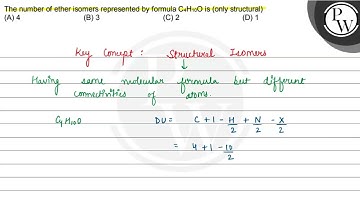 The number of ether isomers represented by formula C₄H₁₀O is (only structural)
(A) 4 (B) 3 (C) 2 (D) 1
Key Concept : Structural Isomers
Having same molecular formula but different
connectivities of atoms.
C₄H₁₀O DU = C + 1 - H/2 + N/2 - X/2
= 4 + 1 - 10/2